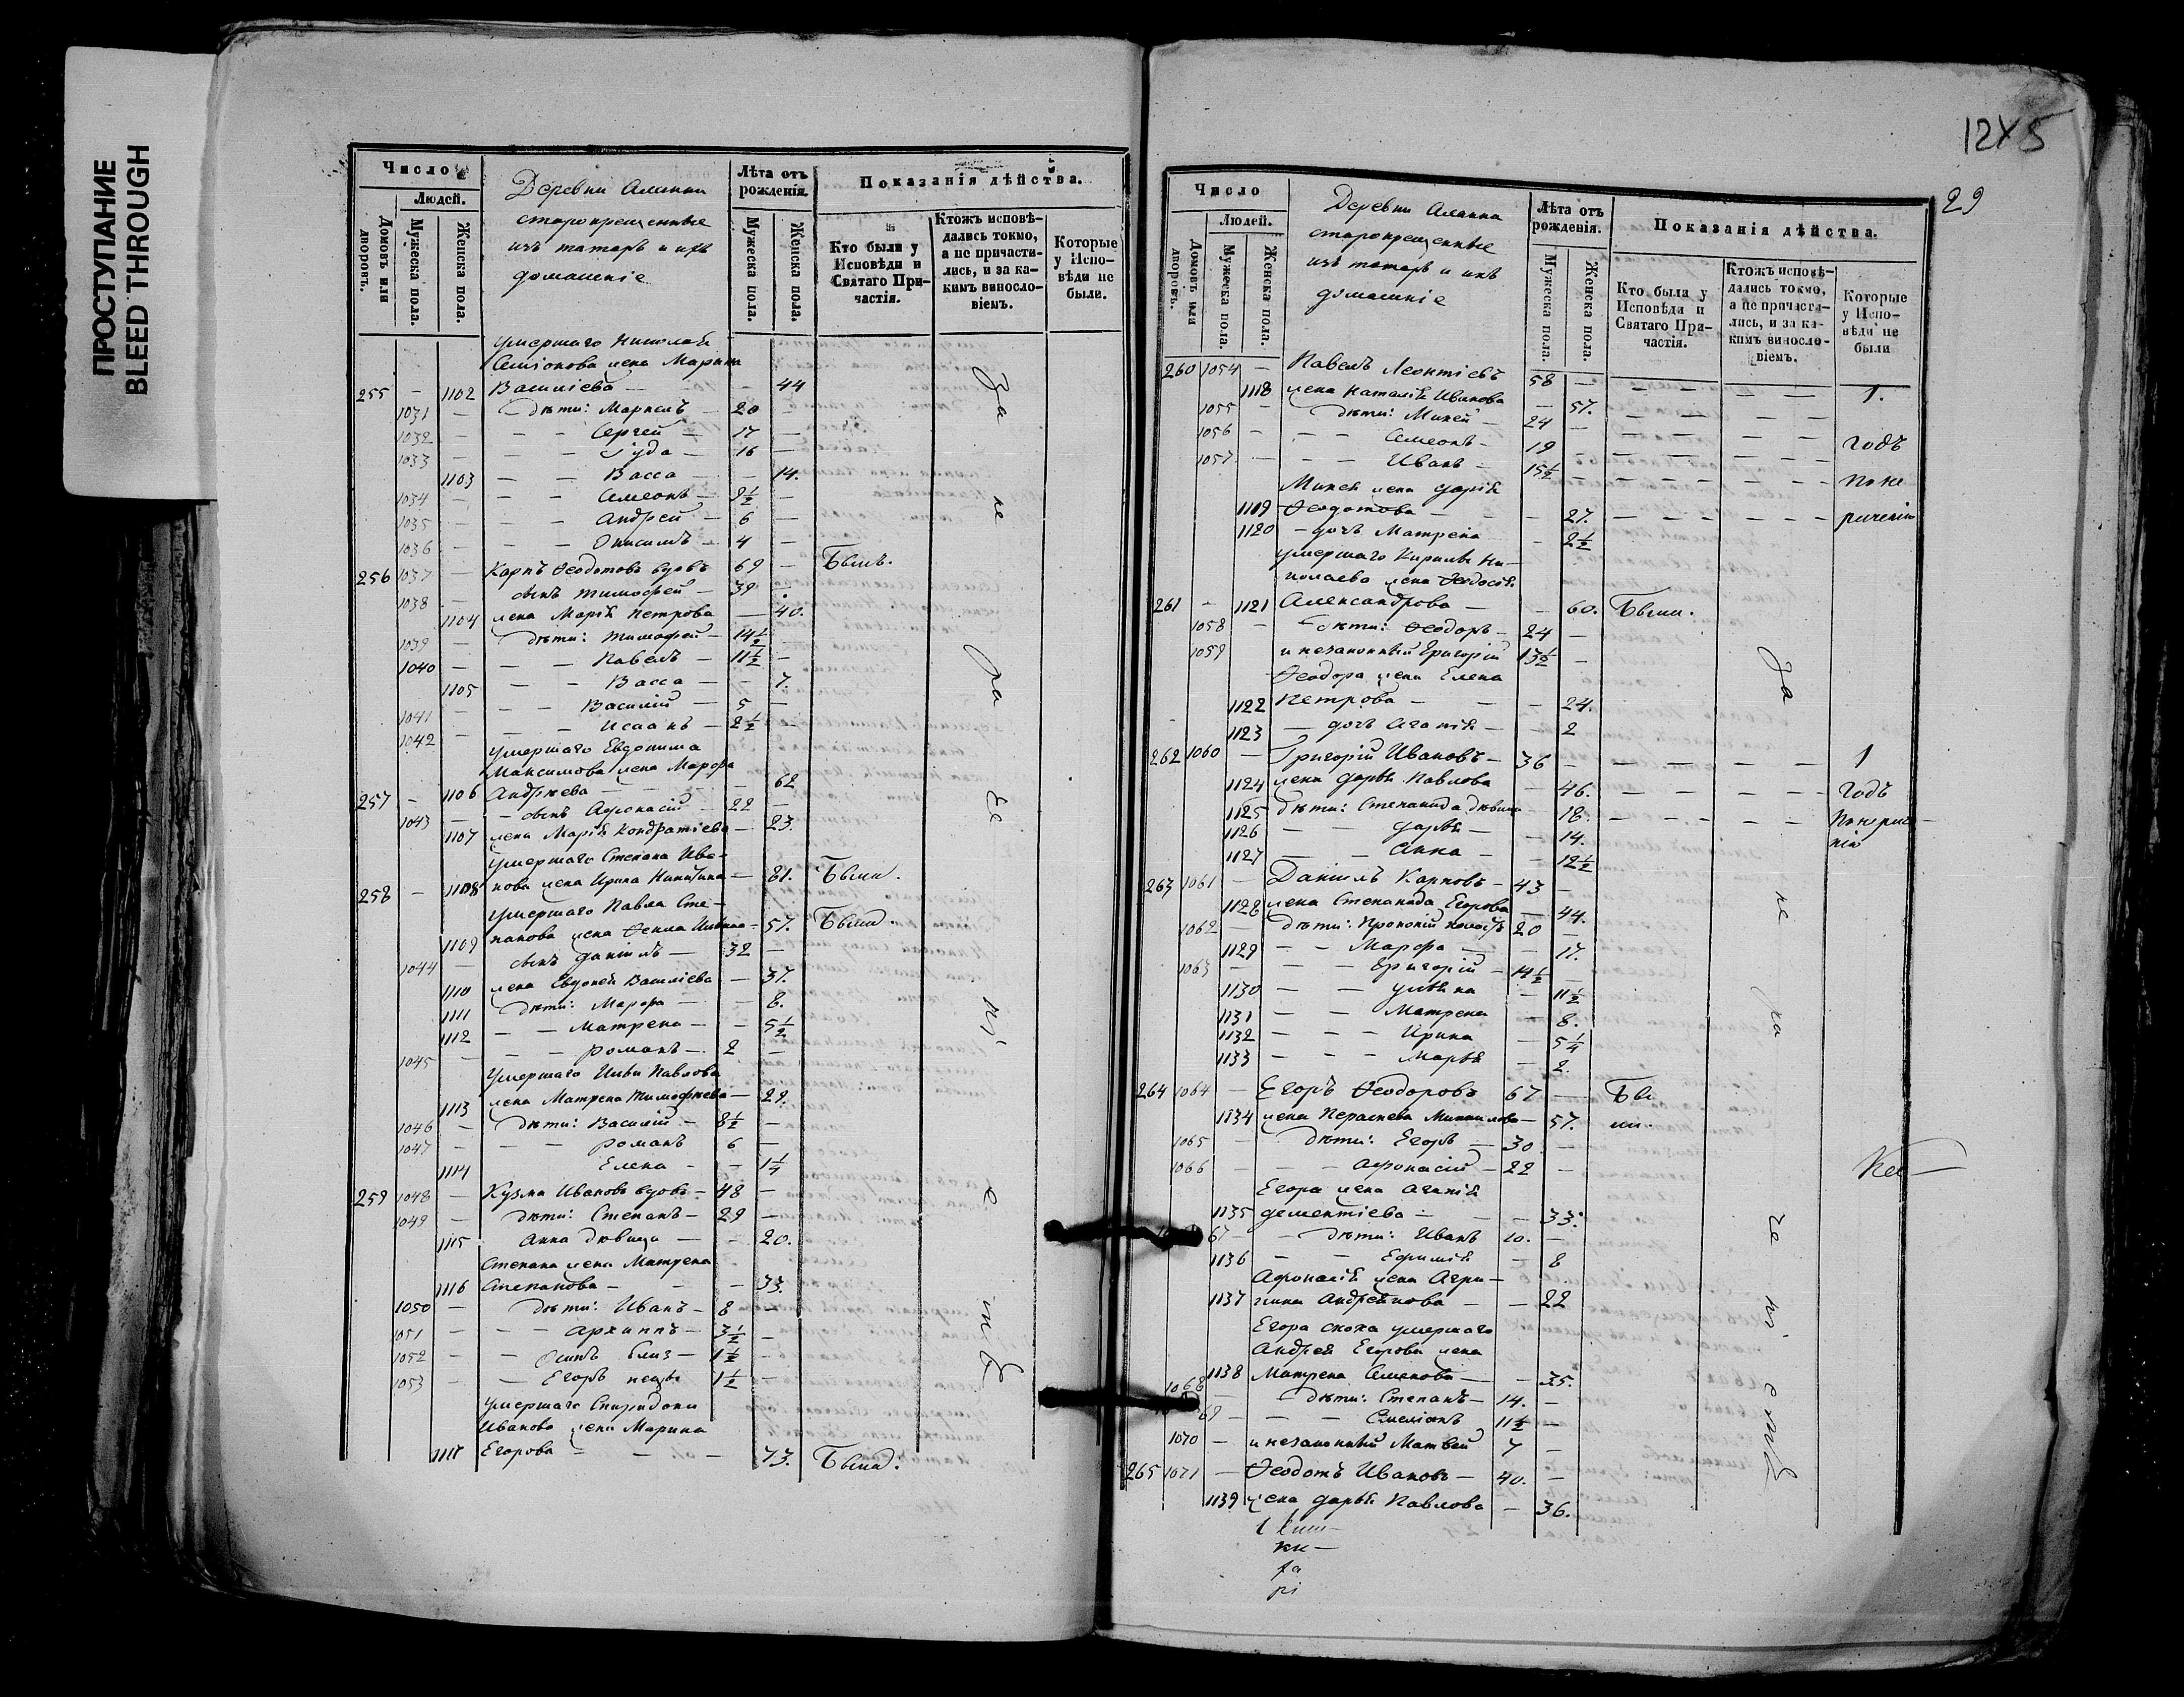 ПРОСТУПАНИЕ
BLEED THROUGH
Число
Людей.
Домовъ или дворовъ.
Мужеска пола.
Женска пола.
Деревни Аланки
старокрещенные
изъ татаръ и ихъ
домашніе
Лѣта отъ рожденія.
Мужеска пола.
Женска пола.
Показанія дѣйства.
Кто были у Исповѣди и Святаго При-
частія.
Ктожъ исповѣ-
дались токмо,
а не причасти-
лись, и за ка-
кимъ винosло-
віемъ.
Которые
у Испо-
вѣди не
были.
умершаго Николая
Семіонова жена Марина
255 - 1102 Василіева - - 44
1031 - дѣти: Маркелъ - 20
1032 - - - Сергей - 17 -
1033 - - - Іуда - 16 -
1103 - - Васса - - 14.
1034 - - - Симеонъ - 9½ -
1035 - - - Андрей - 6 -
1036 - - - Онисимъ - 4 -
256 1037 - Карпъ Ѳеодотовъ вдовъ 69 - Былъ.
1038 - сынъ Тимофей - 39 -
1104 жена Марія Петрова - 40.
1039 - дѣти: Тимофей - 14½ -
1040 - - - Павелъ - 11½ -
1105 - - Васса - - 7.
1041 - - - Василій - 5 -
1042 - - - Исаакъ - 2½ -
умершаго Евдокима
Максимова жена Марфа
257 - 1106 Андреева - - 62
1043 - - сынъ Афонасій - 22 -
1107 жена Марія Кондратіева - 23.
умершаго Степана Ива-
258 - 1108 нова жена Ирина Никитина - 81. Была.
умершаго Павла Сте-
1109 панова жена Ѳекла - 57. Была.
1044 - сынъ Даніилъ - 32 -
1110 жена Евдокея Василіева - 37.
1111 дѣти: Марфа - - 8.
1112 - - Матрена - - 5½
1045 - - - Романъ - 2 -
умершаго Ильи Павлова
1113 жена Матрена Тимофеева - 29.
1046 - дѣти: Василій - 8½ -
1047 - - - Романъ 6 -
1114 Елена - - 1¼
259 1048 - Кузма Ивановъ вдовъ - 48 -
1049 - дѣти: Степанъ - 29 -
1115 Анна дѣвица - - 20.
Степана жена Матрена
1116 Степанова - - - 33.
1050 - дѣти: Иванъ - 8 -
1051 - - - Архиппъ - 3½ -
1052 - - Осипъ близ - 1½ -
1053 - - Егоръ нецы 1½ -
умершаго Спиридона
Иванова жена Марина
1117 Егорова - - - 73. Была.
За не ра че ні е мъ
12X5
29
Число
Людей.
Домовъ или дворовъ.
Мужеска пола.
Женска пола.
Деревни Аланка
старокрещенные
изъ татаръ и ихъ
домашніе
Лѣта отъ рожденія.
Мужеска пола.
Женска пола.
Показанія дѣйства.
Кто были у Исповѣди и Святаго При-
частія.
Ктожъ исповѣ-
дались токмо,
а не причасти-
лись, и за ка-
кимъ винosло-
віемъ.
Которые
у Испо-
вѣди не
были
260 1054 - Павелъ Леонтіевъ 58 - 1.
1118 жена Наталія Иванова - 57.
1055 - дѣти: Михей - 24 -
1056 - - - Симеонъ - 19 годъ
1057 - - - Иванъ - 15½
Михея жена Дарія по не
1119 Ѳеодотова - - 27. раченію
1120 - дочь Матрена - 2½
умершаго Кирила Ни-
колаева жена Ѳеодосія
261 - 1121 Александрова - - 60. Были.
1058 - дѣти: Ѳеодоръ - 24 -
1059 и незаконный Григорій 13½ -
Ѳеодора жена Елена
1122 Петрова - - - 24.
1123 - дочь Агапія - - 2
262 1060 - Григорій Ивановъ - 36 - 1
1124 жена Дарья Павлова - 46. годъ
1125 дѣти: Степанида дѣвица 18. по нерače-
1126 - - Дарья - - 14. нію
1127 - - Анна - - 12½
263 1061 - Даніилъ Карповъ - 43 -
1128 жена Степанида Егорова - 44.
1062 - дѣти: Прокопій холостъ 20 -
1129 - - Марфа - - 17.
1063 - - - Григорій - 14½ -
1130 - - Ульяна - 11½
1131 - - Матрена - 8.
1132 - - - Ирина - 5¼
1133 - - - Марья - 2.
264 1064 - Егоръ Ѳеодоровъ 67 - Бы-
1134 жена Пераскева Михайлова - 57. ли.
1065 - дѣти: Егоръ - 30 -
1066 - - - Афонасій - 22 -
Егора жена Агапія
1135 Дементіева - - - 33.
67 - - дѣти: Иванъ 10. -
1136 - - Ефимія - 8
Афонасія жена Агри-
1137 пина Андреянова - - 22
Егора сноха умершаго
Андрея Егорова жена
1138 Матрена Семенова - - 35.
1068 - дѣти: Степанъ - 14. -
69 - - - Симеіонъ 11½ -
1070 - и незаконный Матвей 7 -
265 1071 - Ѳеодотъ Ивановъ - 40. -
1139 жена Дарья Павлова - 36.
За не ра че ні е мъ